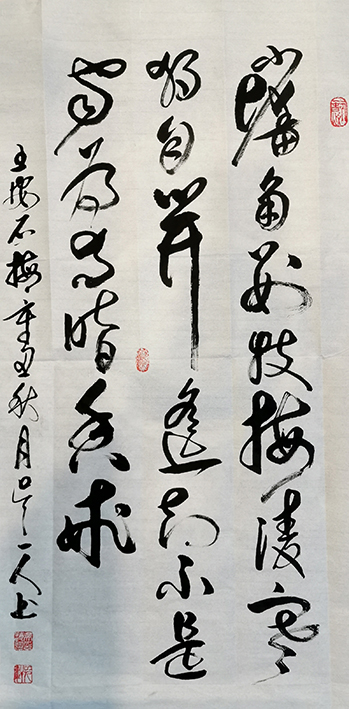 墙角数枝梅凌寒
独自開遥知不是
雪为有暗香来
王安石梅辛丑秋月一人书